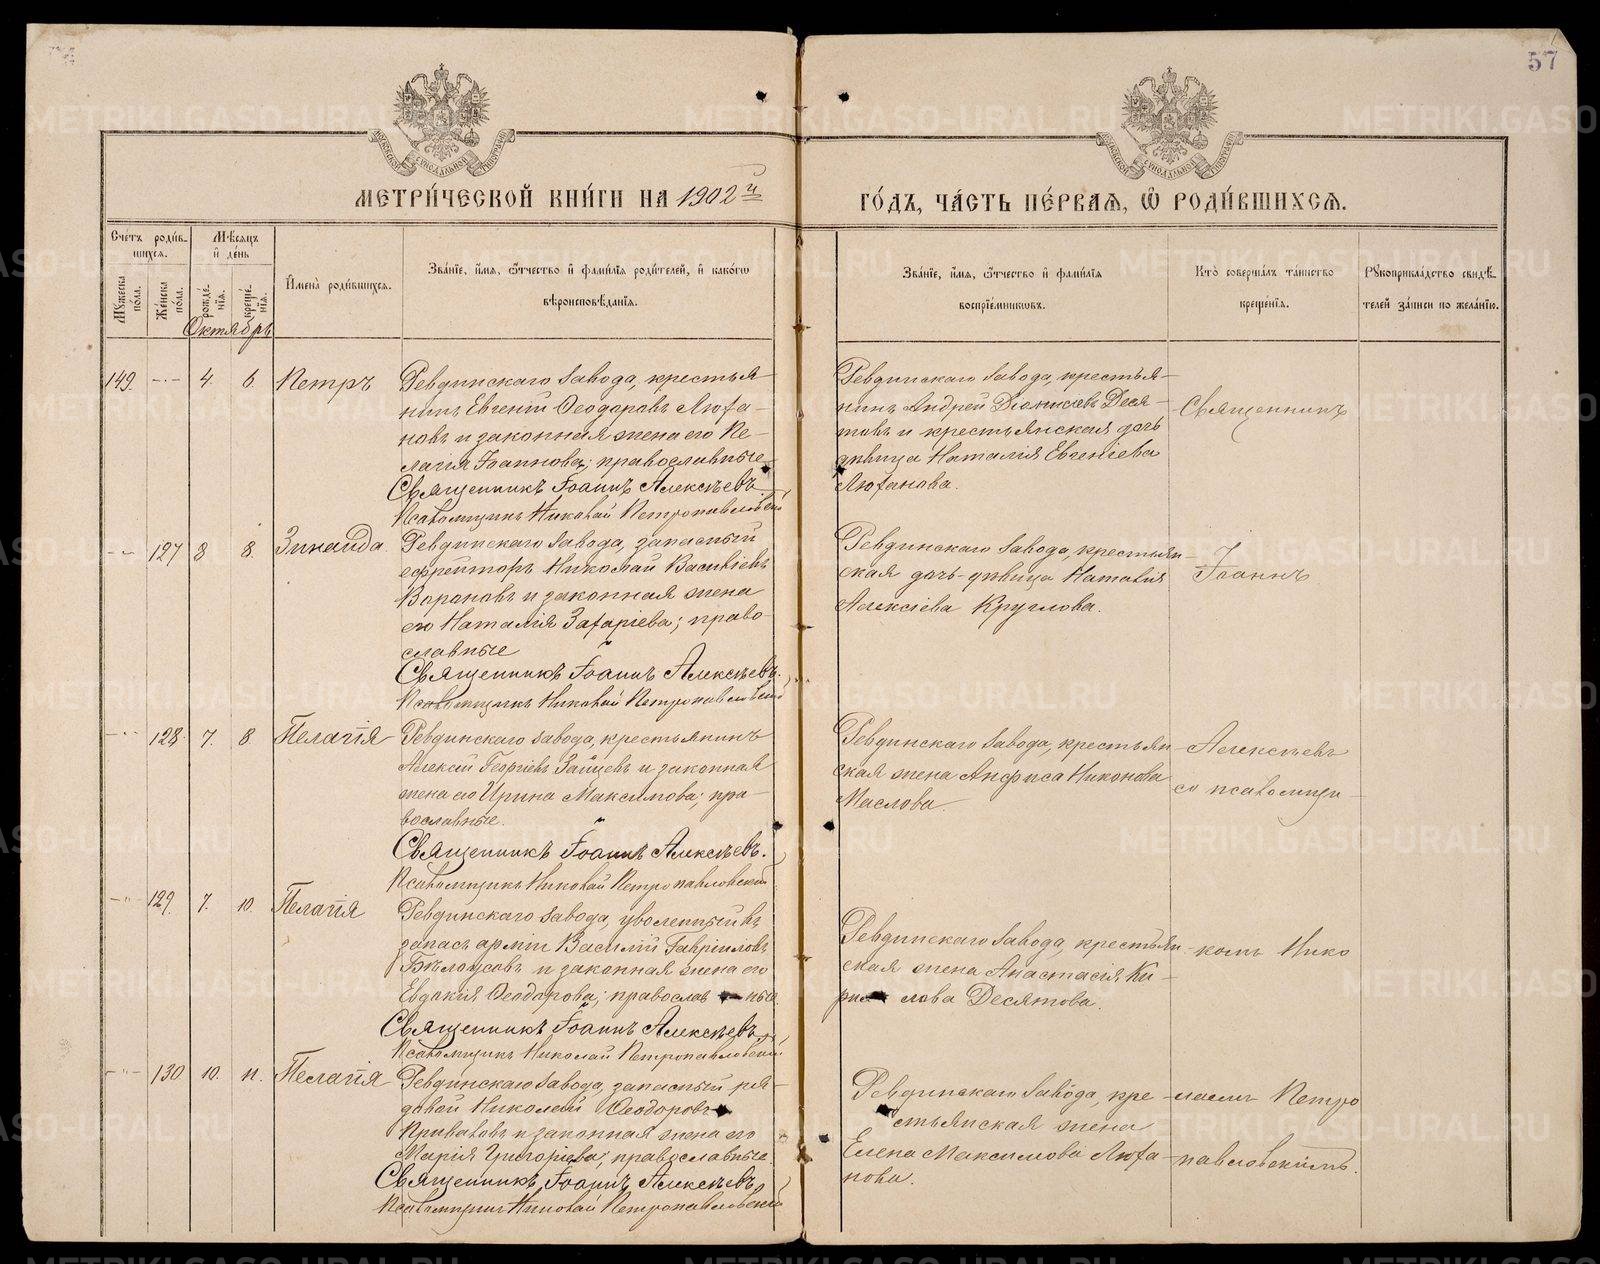 57
МЕТРИ́ЧЕСКОЙ КНИ́ГИ НА 1902 й
ГО́ДЪ, ЧА́СТЬ ПЕ́РВАѦ, Ѽ РОДИ́ВШИХСѦ.
Сче́тъ роди́в-
шихсѧ.
Мѣ́сѧцъ
и҆ де́нь
Мꙋ́жеска
по́ла.
Же́нска
по́ла.
рожде́-
нїѧ.
креще́-
нїѧ.
И҆мена̀ роди́вшихсѧ.
Зва́нїе, и҆́мѧ, ѻ҆́тчество и҆ фами́лїѧ роди́телей, и҆ како́гѡ
вѣроисповѣ́данїѧ.
Зва́нїе, и҆́мѧ, ѻ҆́тчество и҆ фами́лїѧ
воспрїе́мниковъ.
Кто̀ соверша́лъ та́инство
креще́нїѧ.
Рꙋкоприкла́дство свидѣ́-
телей за́писи по жела́нїю.
Октябрь
149. -·- 4. 6. Петръ
Ревдинскаго завода, крестья-
нинъ Евгеній Ѳеодоровъ Люха-
новъ и законная жена его Пе-
лагія Іоаннова; православные
Священникъ Іоаннъ Алексѣевъ.
Псаломщикъ Николай Петропавловскій
Ревдинскаго завода, крестья-
нинъ Андрей Діонисіевъ Деся-
товъ и крестьянская дочь
дѣвица Наталія Евгеніева
Люханова.
Священникъ
-- 127 8 8. Зинаида.
Ревдинскаго завода, запасный
ефрейторъ Николай Васильевъ
Вороновъ и законная жена
его Наталія Захаріева; право-
славные
Священникъ Іоаннъ Алексѣевъ.
Псаломщикъ Николай Петропавловскій
Ревдинскаго завода, крестьян-
ская дочь-дѣвица Наталія
Алексіева Круглова.
Іоаннъ
-- 128. 7. 8. Пелагія
Ревдинскаго завода, крестьянинъ
Алексій Георгіевъ Зайцевъ и законная
жена его Ирина Максимова; пра-
вославные.
Священникъ Іоаннъ Алексѣевъ.
Псаломщикъ Николай Петропавловскій
Ревдинскаго завода, крестьян-
ская жена Анфиса Никонова
Маслова
Алексѣевъ
съ псаломщи-
-- 129. 7. 10. Пелагія
Ревдинскаго завода, уволенный въ
запасъ арміи Василій Гавріиловъ
Бѣлоусовъ и законная жена его
Евдокія Ѳеодорова; православные
Священникъ Іоаннъ Алексѣевъ.
Псаломщикъ Николай Петропавловскій
Ревдинскаго завода, крестьян-
ская жена Анастасія Ки-
рилова Десятова.
комъ Нико
-- 130 10. 11. Пелагія
Ревдинскаго завода, запасный ря-
довой Николай Ѳеодоровъ
Приваловъ и законная жена его
Марія Григоріева; православные
Священникъ Іоаннъ Алексѣевъ.
Псаломщикъ Николай Петропавловскій
Ревдинскаго завода, кре-
стьянская жена
Елена Максимова Люха-
нова.
лаемъ Петро
павловскимъ.